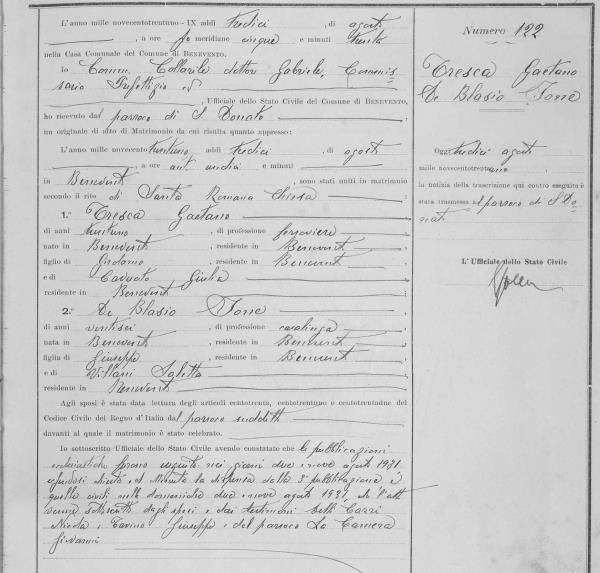 L'anno mille novecentotrentuno - IX addì tredici, di agosto
, a ore pomeridiane cinque e minuti trenta
nella Casa Comunale del Comune di BENEVENTO.
Io Comm. Collarile dottor Gabriele, Commis
sario Prefettizio
, Ufficiale dello Stato Civile del Comune di BENEVENTO,
ho ricevuto dal parroco di S. Donato
un originale di atto di Matrimonio da cui risulta quanto appresso:
L'anno mille novecento trentuno, addì tredici, di agosto
, a ore ant. undici e minuti
in Benevento, sono stati uniti in matrimonio
secondo il rito di Santa Romana Chiesa
1.° Tresca Gaetano
di anni trentuno, di professione ferroviere
nato in Benevento, residente in Benevento
figlio di Girolamo, residente in Benevento
e di Giulia
residente in Benevento
2.° De Blasio Ione
di anni ventisei, di professione casalinga
nata in Benevento, residente in Benevento
figlia di Giuseppe, residente in Benevento
e di Villani
residente in Benevento
Agli sposi è stata data lettura degli articoli centotrenta, centotrentuno e centotrentadue del
Codice Civile del Regno d'Italia dal parroco suddetto
davanti al quale il matrimonio è stato celebrato.
Io sottoscritto Ufficiale dello Stato Civile avendo constatato che le pubblicazioni
ecclesiastiche furono eseguite nei giorni due e nove agosto 1931
la dispensa dalla 3ª pubblicazione e
quelle civili nelle domeniche due e nove agosto 1931, che l'atto
venne sottoscritto dagli sposi e dai testimoni
Nicola e Giuseppe e dal parroco La Camera
Giovanni
Numero 122
Tresca Gaetano
De Blasio Ione
Oggi tredici agosto
mille novecentotrentuno,
la notizia della trascrizione qui contro eseguita è
stata trasmessa al parroco di S. Do
nato
L'Ufficiale dello Stato Civile